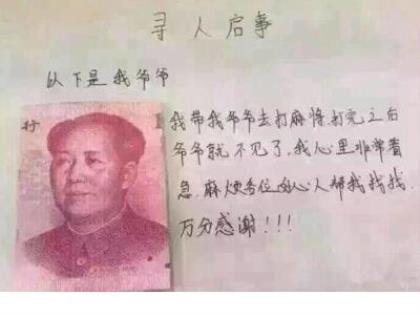 寻人启事
以下是我爷爷
行
我带我爷爷去打麻将,打完之后
爷爷就不见了,我心里非常着
急.麻烦各位好心人帮我找找.
万分感谢!!!